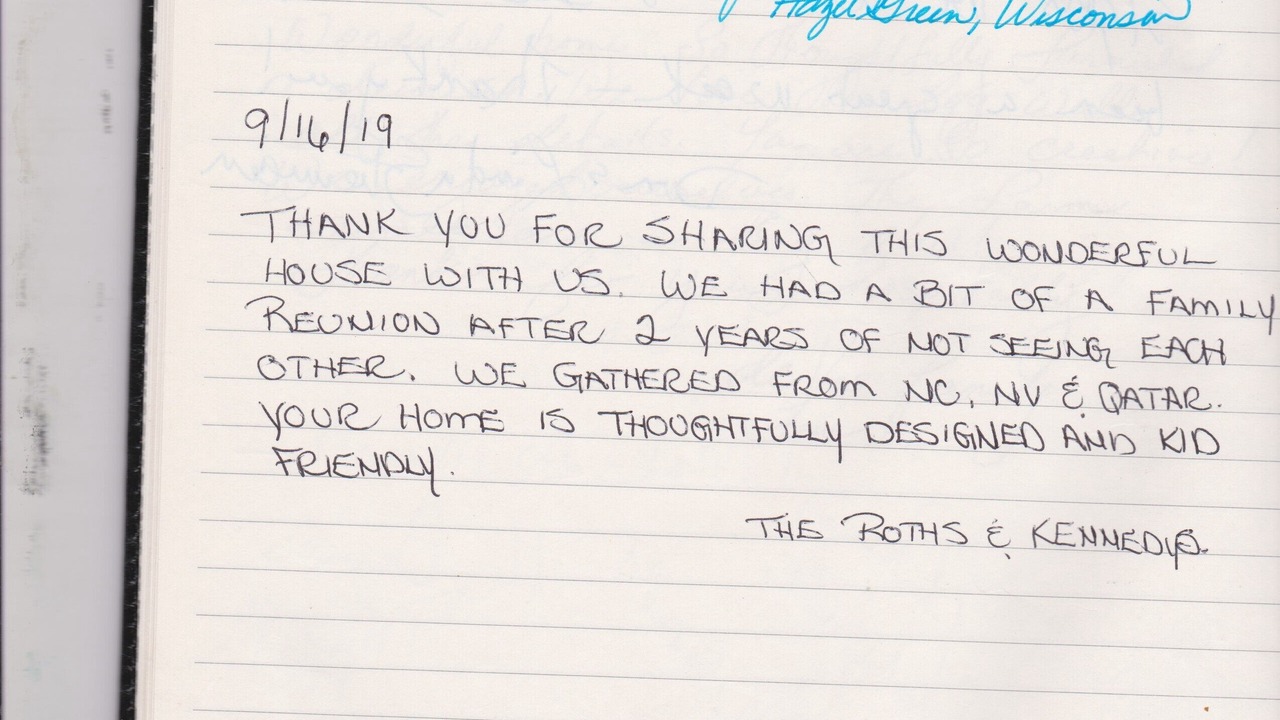 Hazel Green, Wisconsin
9/16/19
THANK YOU FOR SHARING THIS WONDERFUL
HOUSE WITH US. WE HAD A BIT OF A FAMILY
REUNION AFTER 2 YEARS OF NOT SEEING EACH
OTHER. WE GATHERED FROM NC, NV & QATAR.
YOUR HOME IS THOUGHTFULLY DESIGNED AND KID
FRIENDLY.
THE ROTHS & KENNEDYS.